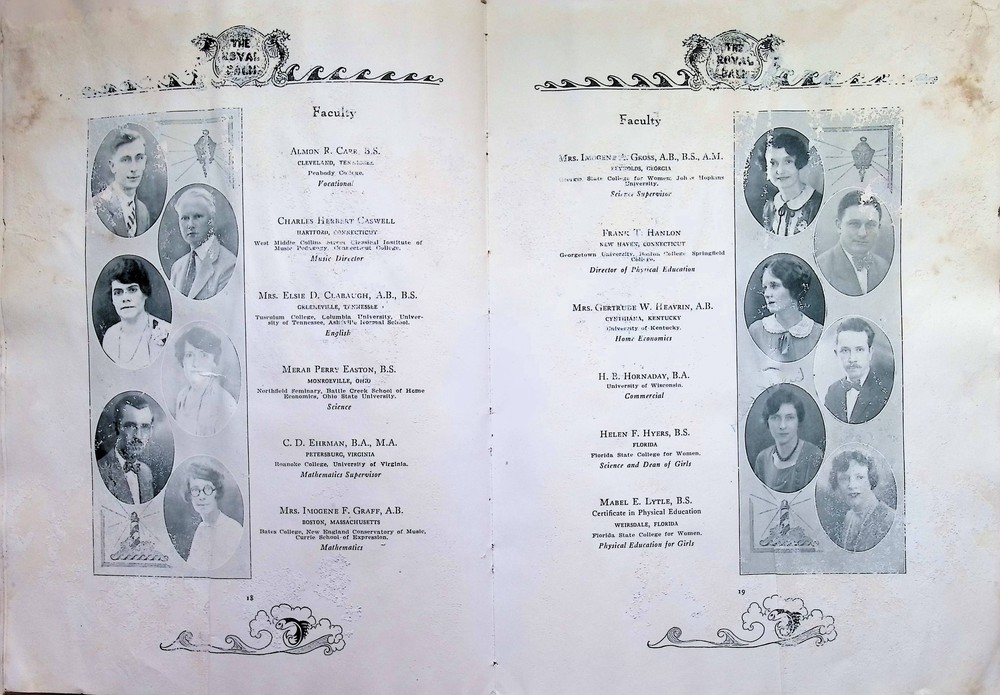 THE
ROYAL
PALM
Faculty
ALMON R. CARR, B.S.
CLEVELAND, TENNESSEE
Peabody College.
Vocational
CHARLES HERBERT CASWELL
HARTFORD, CONNECTICUT
West Middle Collins Street Classical Institute of
Music Pedagogy, Connecticut College.
Music Director
MRS. ELSIE D. CLABAUGH, A.B., B.S.
GREENEVILLE, TENNESSEE
Tusculum College, Columbia University, Univer-
sity of Tennessee, Asheville Normal School.
English
MERAB PERRY EASTON, B.S.
MONROEVILLE, OHIO
Northfield Seminary, Battle Creek School of Home
Economics, Ohio State University.
Science
C. D. EHRMAN, B.A., M.A.
PETERSBURG, VIRGINIA
Roanoke College, University of Virginia.
Mathematics Supervisor
MRS. IMOGENE F. GRAFF, A.B.
BOSTON, MASSACHUSETTS
Bates College, New England Conservatory of Music,
Currie School of Expression.
Mathematics
18
THE
ROYAL
PALM
Faculty
MRS. IMOGENE A. GROSS, A.B., B.S., A.M.
REYNOLDS, GEORGIA
Georgia State College for Women, Johns Hopkins
University.
Science Supervisor
FRANK T. HANLON
NEW HAVEN, CONNECTICUT
Georgetown University, Boston College Springfield
College.
Director of Physical Education
MRS. GERTRUDE W. HEAVRIN, A.B.
CYNTHIANA, KENTUCKY
University of Kentucky.
Home Economics
H. B. HORNADAY, B.A.
University of Wisconsin.
Commercial
HELEN F. HYERS, B.S.
FLORIDA
Florida State College for Women.
Science and Dean of Girls
MABEL E. LYTLE, B.S.
Certificate in Physical Education
WEIRSDALE, FLORIDA
Florida State College for Women.
Physical Education for Girls
19